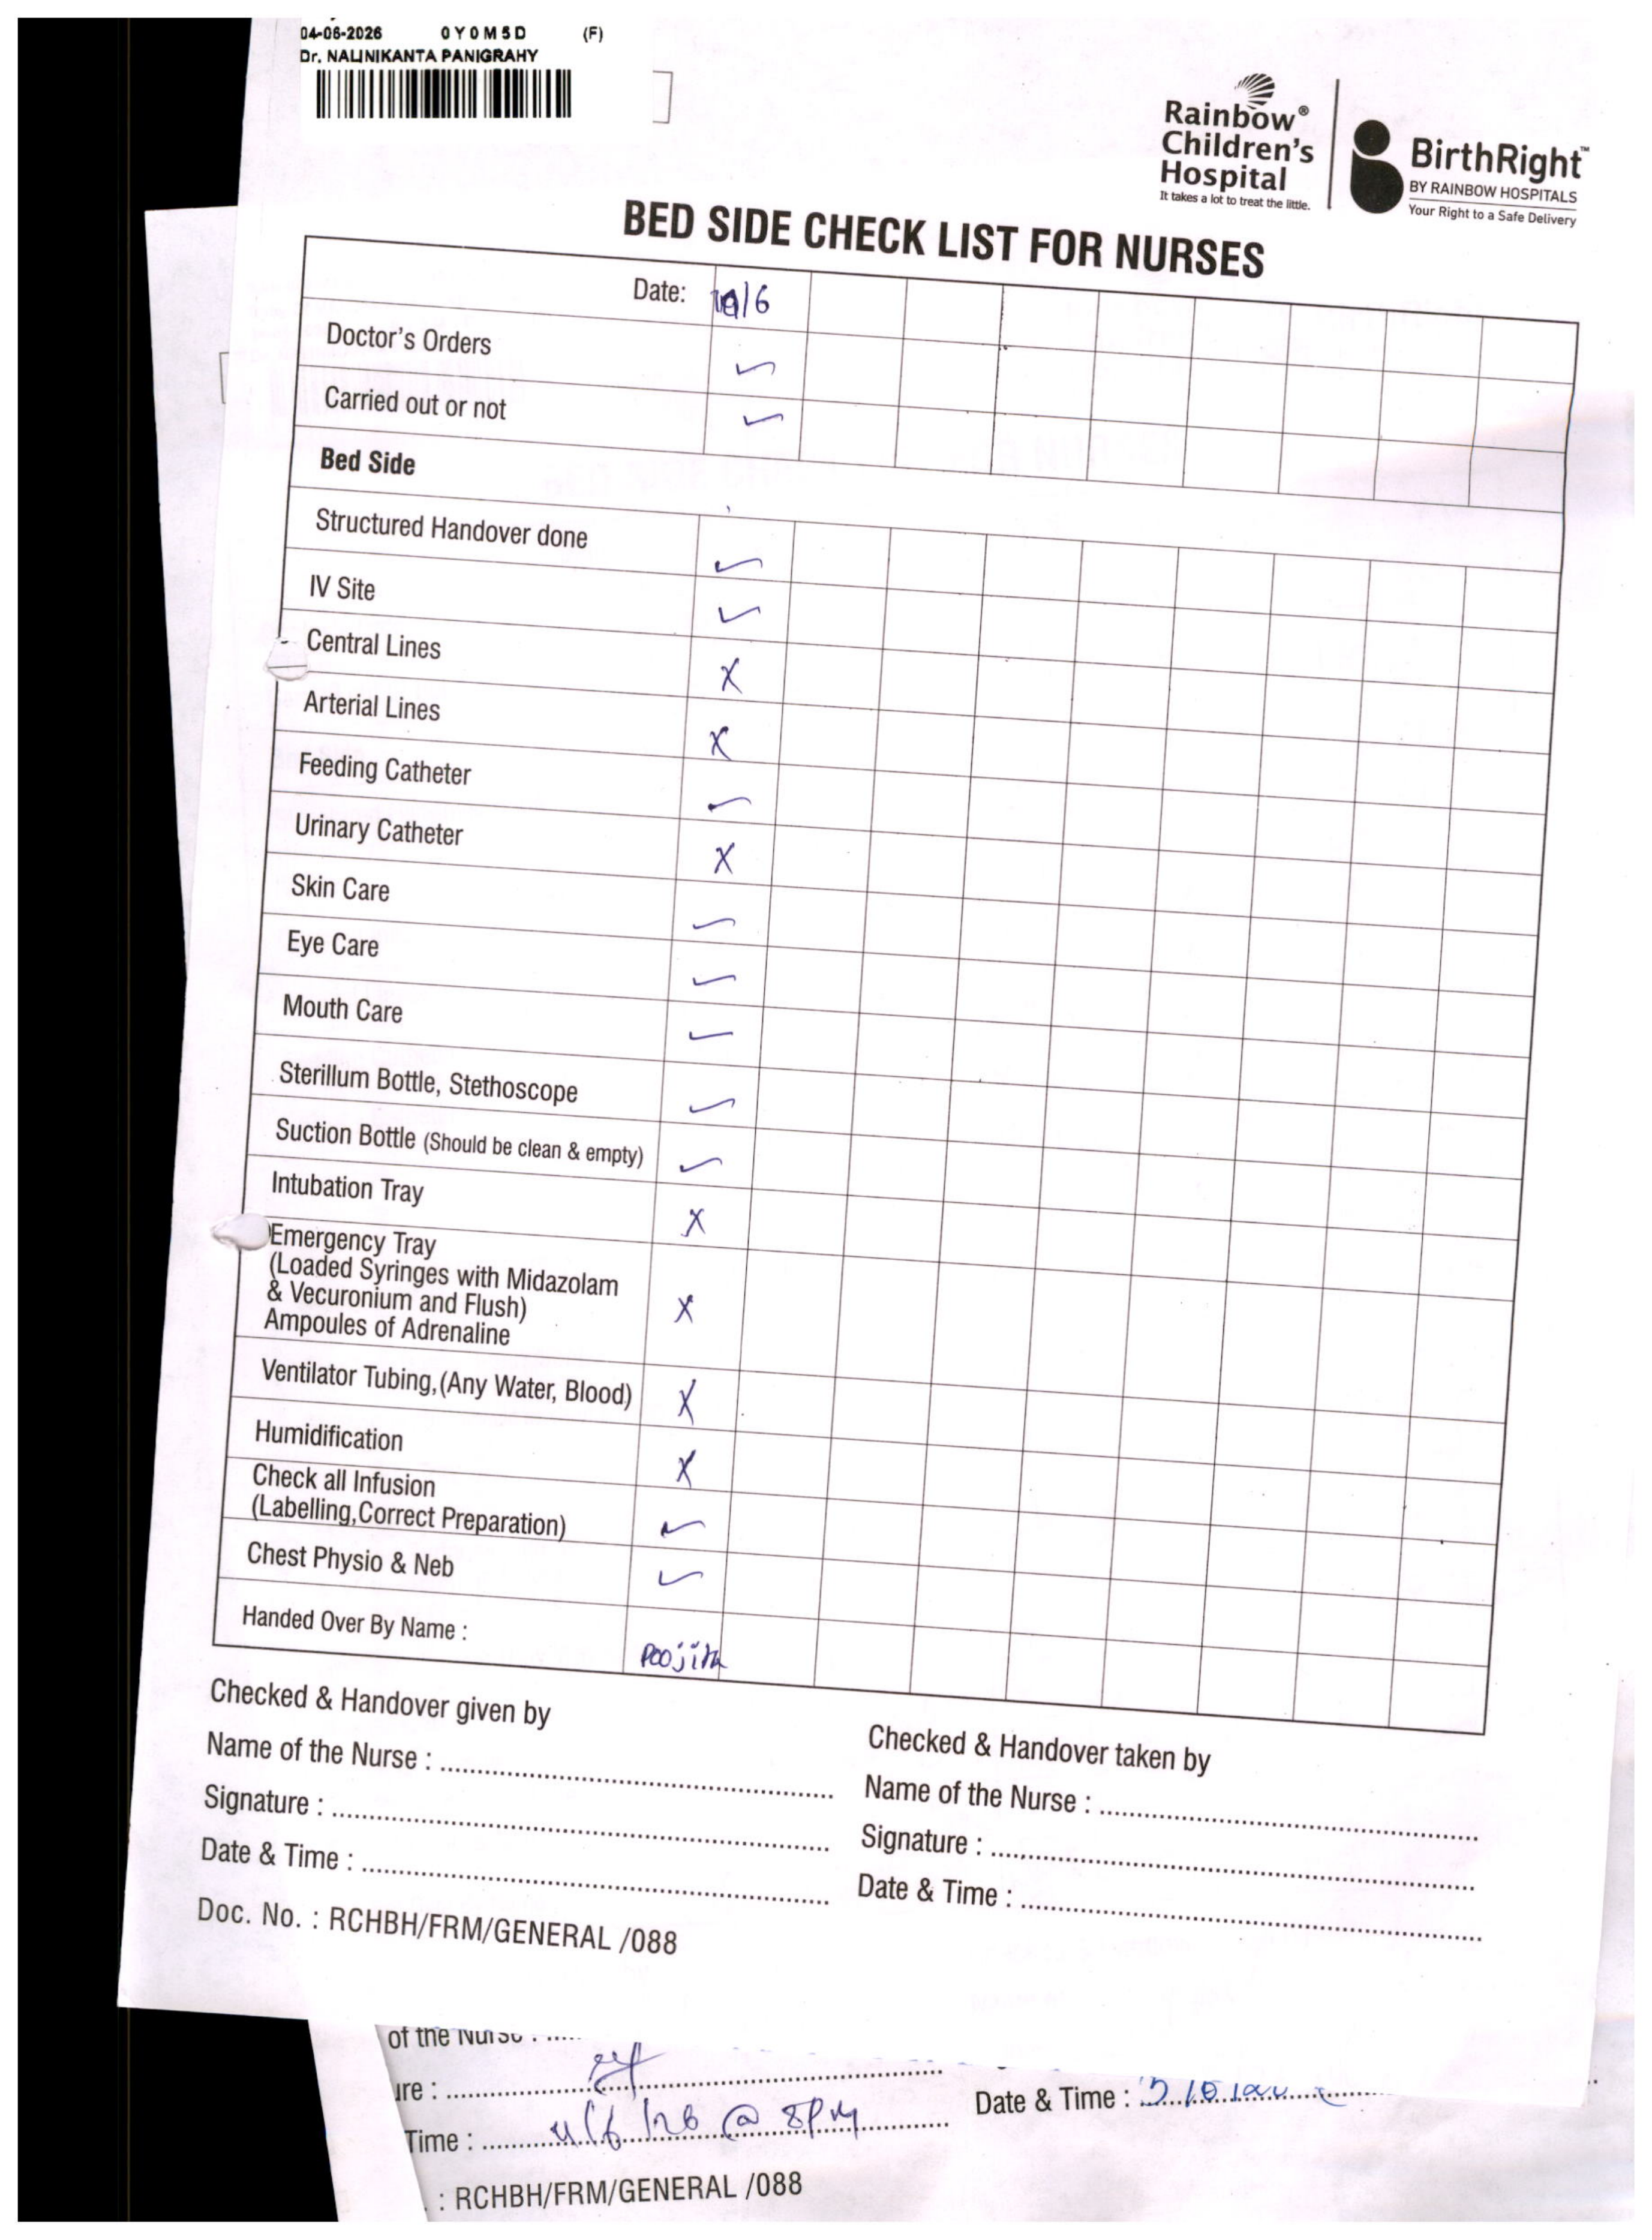 04-06-2026 0Y0M5D (F)
Dr. NALINIKANTA PANIGRAHY
Rainbow®
Children's
Hospital
It takes a lot to treat the little.
BirthRight™
BY RAINBOW HOSPITALS
Your Right to a Safe Delivery
BED SIDE CHECK LIST FOR NURSES
Date: /6
Doctor's Orders ✓
Carried out or not ✓
Bed Side
Structured Handover done ✓
IV Site ✓
Central Lines X
Arterial Lines X
Feeding Catheter ✓
Urinary Catheter X
Skin Care ✓
Eye Care ✓
Mouth Care ✓
Sterillum Bottle, Stethoscope ✓
Suction Bottle (Should be clean & empty) ✓
Intubation Tray X
Emergency Tray
(Loaded Syringes with Midazolam
& Vecuronium and Flush)
Ampoules of Adrenaline X
Ventilator Tubing,(Any Water, Blood) X
Humidification X
Check all Infusion
(Labelling,Correct Preparation) ✓
Chest Physio & Neb ✓
Handed Over By Name : Poojitha
Checked & Handover given by
Name of the Nurse :
Signature :
Date & Time :
Checked & Handover taken by
Name of the Nurse :
Signature :
Date & Time :
Doc. No. : RCHBH/FRM/GENERAL /088
of the Nurse :
ure :
Time : 4/6/26 @ 8PM
Date & Time :
: RCHBH/FRM/GENERAL /088